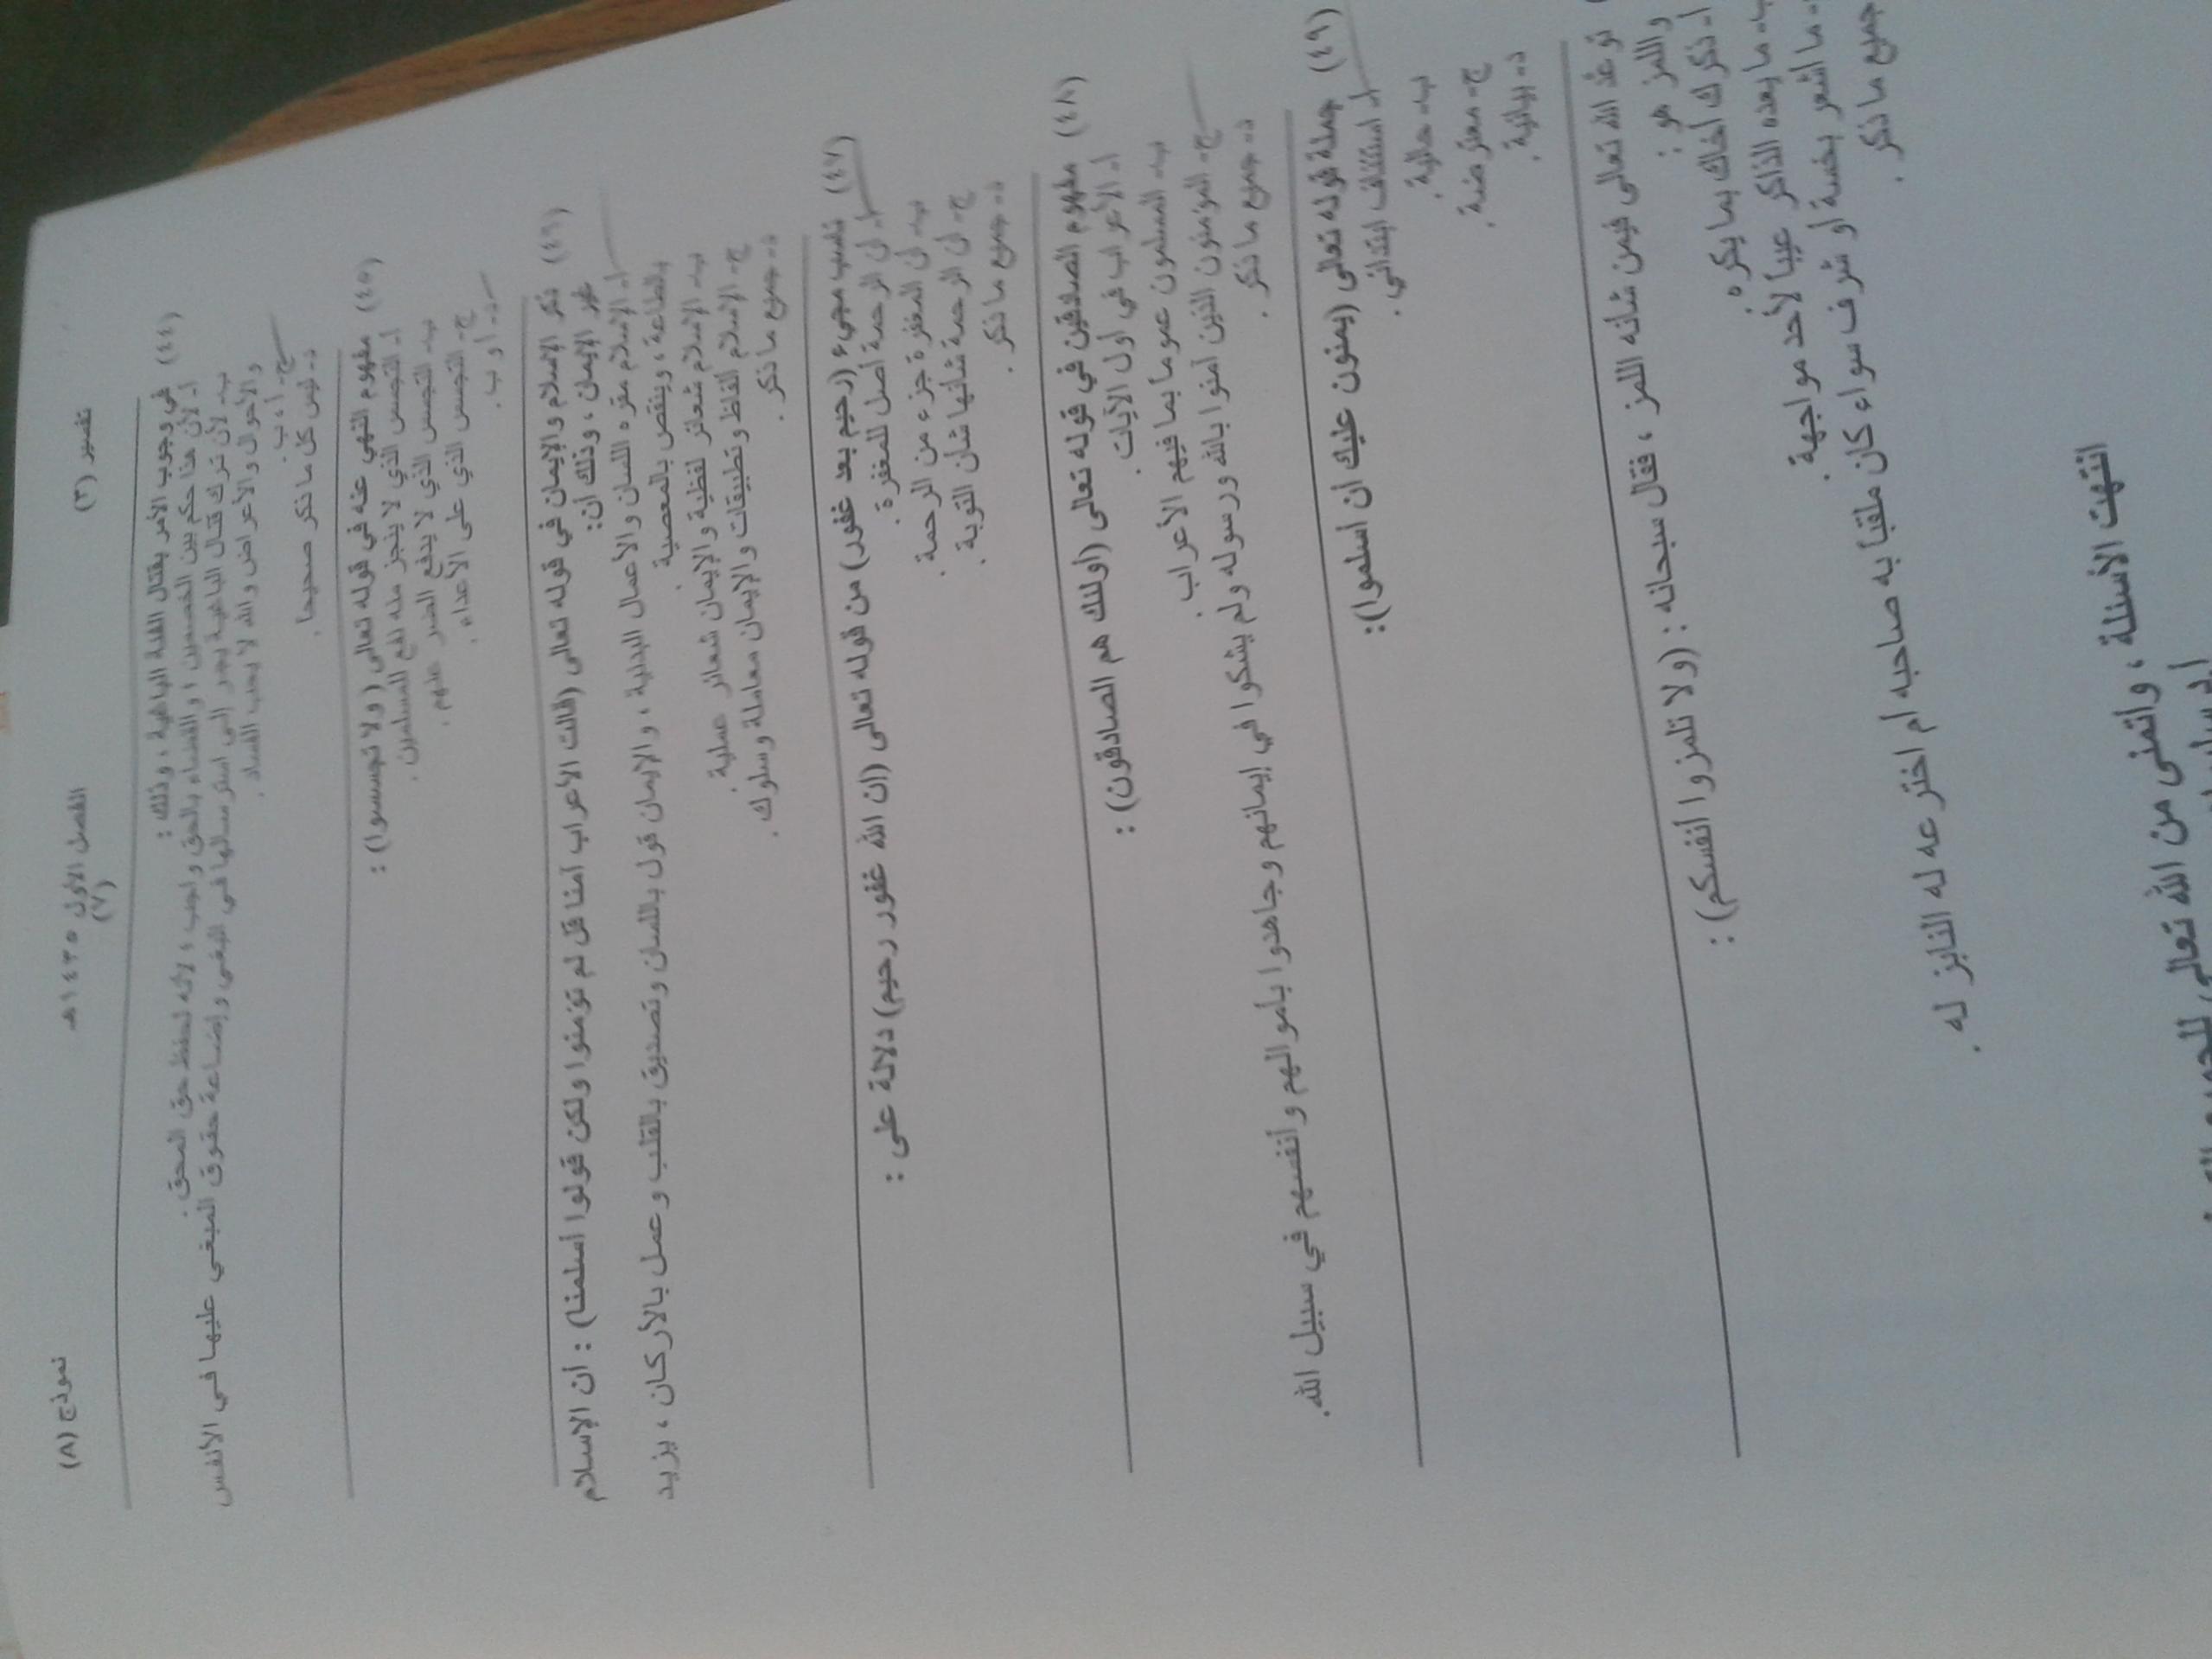 تفسير (٣) الفصل الأول ١٤٣٥هـ نموذج (٨)
(٧)
(٤٤) في وجوب الأمر بقتال الفئة الباغية ، وذلك :
أ- لأن هذا حكم بين الخصمين ، والقضاء بالحق واجب ؛ لأنه لحفظ حق المحق.
ب- لأن ترك قتال الباغية يجر إلى استرسالها في البغي وإضاعة حقوق المبغي عليها في الأنفس
والأحوال والأعراض والله لا يحب الفساد .
ج- أ ، ب
د- ليس كل ما ذكر صحيحا .
(٤٥) مفهوم النهي عنه في قوله تعالى ( ولا تجسسوا) :
أ- التجسس الذي لا ينجز منه نفع للمسلمين .
ب- التجسس الذي لا يدفع الضر عنهم .
ج- التجسس الذي على الأعداء .
د- أ و ب .
(٤٦) ذكر الإسلام والإيمان في قوله تعالى (قالت الأعراب آمنا قل لم تؤمنوا ولكن قولوا أسلمنا) : أن الإسلام
غير الإيمان ، وذلك أن:
أ- الإسلام مقره اللسان والأعمال البدنية ، والإيمان قول باللسان وتصديق بالقلب وعمل بالأركان ، يزيد
بالطاعة ، وينقص بالمعصية
ب- الإسلام شعائر لفظية والإيمان شعائر عملية .
ج- الإسلام ألفاظ وتطبيقات والإيمان معاملة وسلوك .
د- جميع ما ذكر .
(٤٧) تناسب مجيء (رحيم بعد غفور) من قوله تعالى (إن الله غفور رحيم) دلالة على :
أ- أن الرحمة أصل للمغفرة .
ب- أن المغفرة جزء من الرحمة .
ج- أن الرحمة شأنها شأن التوبة .
د- جميع ما ذكر .
(٤٨) مفهوم الصادقين في قوله تعالى (أولئك هم الصادقون) :
أ- الأعراب في أول الآيات .
ب- المسلمون عموما بما فيهم الأعراب .
ج- المؤمنون الذين آمنوا بالله ورسوله ولم يشكوا في إيمانهم وجاهدوا بأموالهم وأنفسهم في سبيل الله.
د- جميع ما ذكر .
(٤٩) جملة قوله تعالى (يمنون عليك أن أسلموا):
أ- استئناف ابتدائي .
ب- حالية .
ج- معترضة .
د- بيانية .
توعّد الله تعالى فيمن شأنه اللمز ، فقال سبحانه : (ولا تلمزوا أنفسكم) :
واللمز هو :
أ- ذكرك أخاك بما يكره .
ب- ما يعده الذاكر عيباً لأحد مواجهة .
ما أشعر بخسة أو شرف سواء كان ملقباً به صاحبه أم اخترعه له النابز له .
جميع ما ذكر .
انتهت الأسئلة ، وأتمنى من الله تعالى للجميع